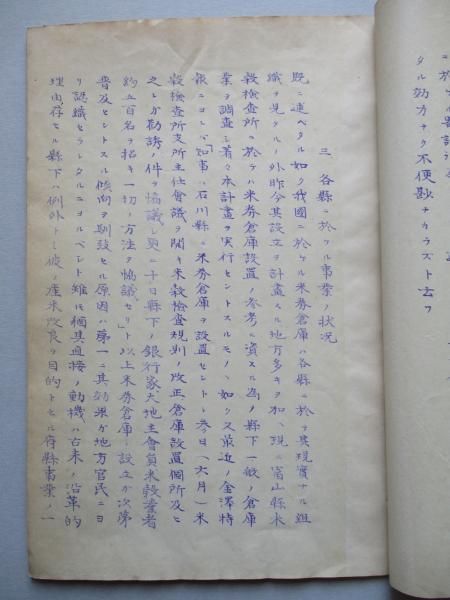 ニ於ケル
タル効力ナク不便尠ナカラズト云フ
三 各縣ニ於ケル事業ノ状况
既ニ述ベタル如ク我國ニ於ケル米券倉庫ハ各縣ニ於テ其現實ナル組
織ヲ見タルノ外昨今其設立ヲ計畫スル地方多キヲ加ヘ現ニ富山縣米
穀検査所ニ於テハ米券倉庫設置ノ参考ニ資スル為メ縣下一般ノ倉庫
業ヲ調査シ着々本計畫ヲ実行セントスルモノヽ如ク又最近ノ金澤特
報ニヨレバ「知事ハ石川縣ニ米券倉庫ヲ設置セントシ参日(六月)米
穀検査所支所主任會議ヲ開キ米穀検査規則ノ改正倉庫設置個所及ヒ
之レガ勧誘ノ件ヲ協議シ更ニ十日縣下ノ銀行家大地主會員米穀業者
約五百名ヲ招キ一切ノ方法ヲ協議セリ」ト以上米券倉庫ノ設立ガ次第
普及セントスル傾向ヲ馴致セル原因ハ第一ニ其効果ガ地方官民ニヨ
リ認識セラレタルニヨルベシト雖モ猶其直接ノ動機ハ古来ノ沿革的
理由存セル縣下ハ例外トシ彼ノ産米改良ヲ目的トセル府縣事業ノ一